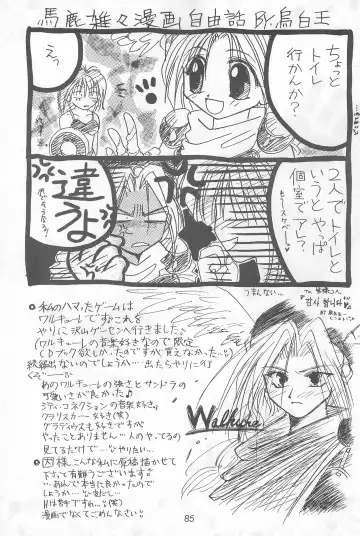 馬鹿雑々漫画 自由話 BY.烏白王
ちょっと
トイレ
行かんか?
えっ
2人でトイレと
いうとやっぱ
個室でアレ?
違うよ
❶ 私のハマったゲームは
ワルキューレです。これを
やりに沢山ゲーセンへ行きました
(ワルキューレの音楽好きなので限定
CDブック欲しかったのですが、買えなかった…)
続編出ないのでしょうか…出たらやりに行
くぞ
あのワルキューレの強さとサンドラの
可愛いさが良かった♪
シティコネクションの音楽好き。
クラリスカー 好き(笑)
グラディウスも好きですが
やったことありません…人のやってるの
見てるだけで…やりたい…
こんな私に原稿描かせて
下さって有難うございます
…あんで本当に良かったので
しょうか…
Hは苦手ですわ…(笑)
漫画でなくてごめんなさい
つまんない…
Walküre
85